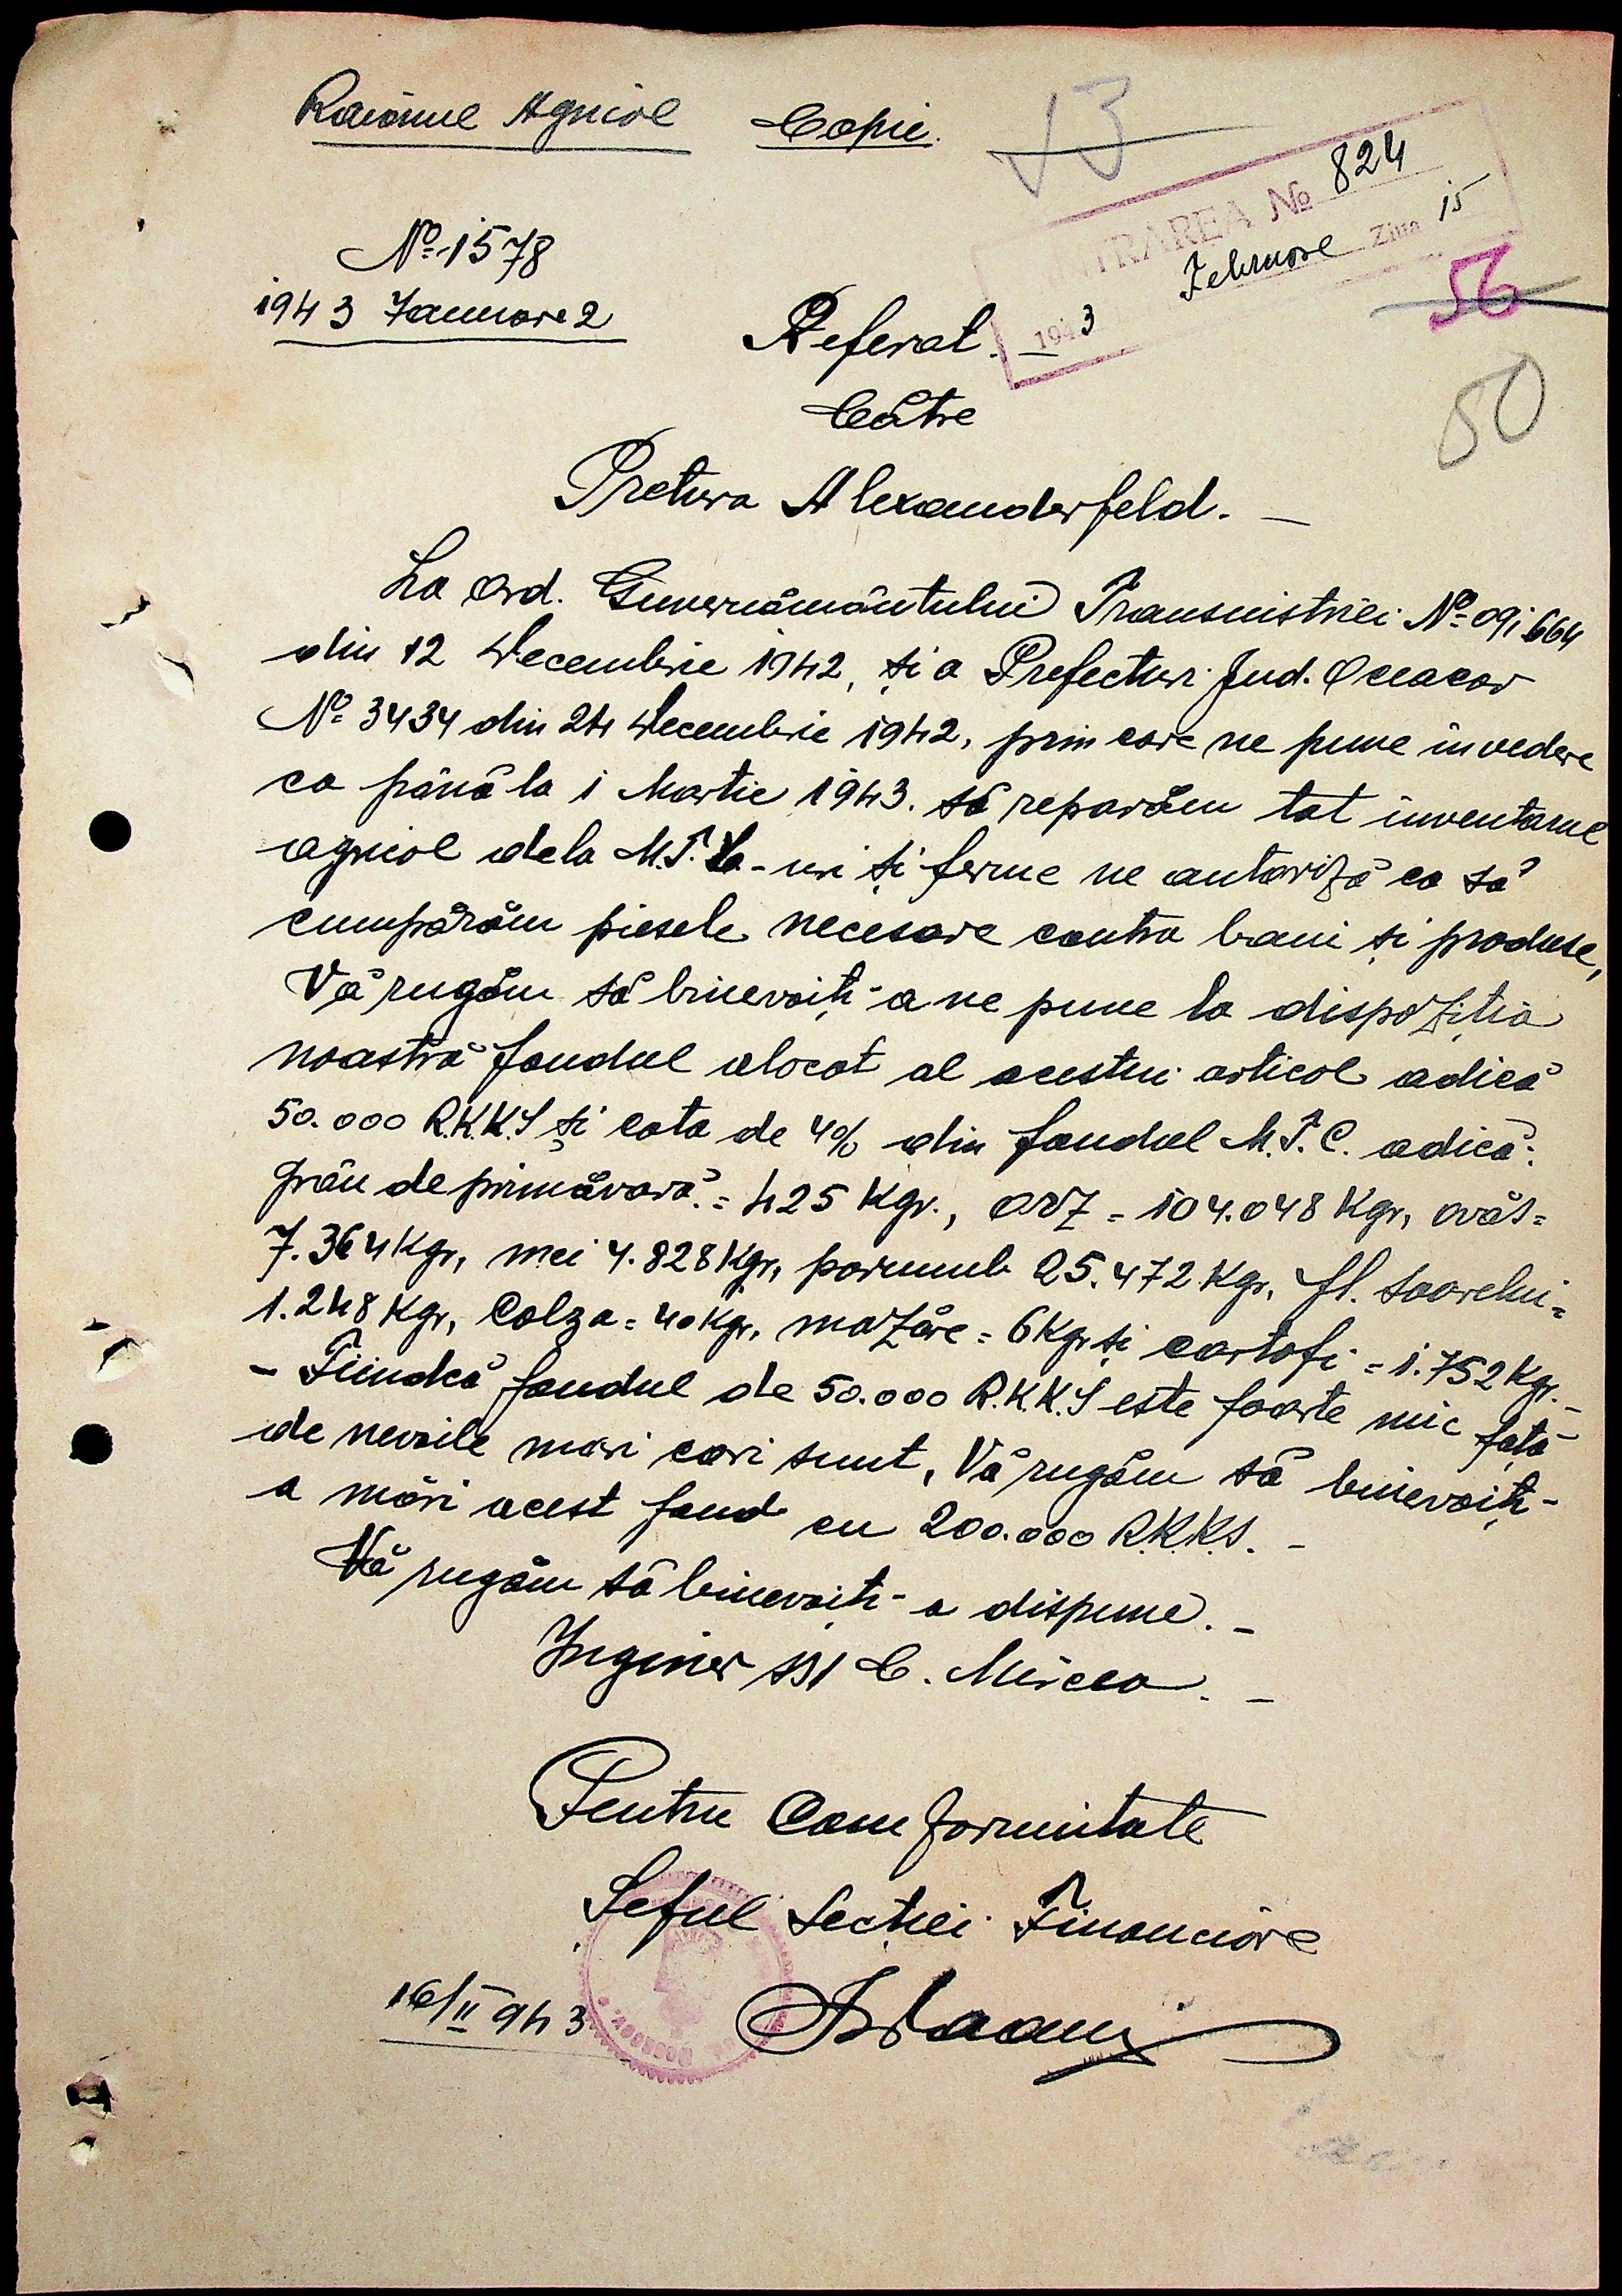 Raionul Agricol Copie.
13
INTRAREA № 824
1943 Februarie Ziua 15
56
50
№ 1578
1943 Ianuarie 2
Referat. —
Către
Pretura Alexanderfeld. —
La Ord. Guvernământului Transnistriei № 091664
din 12 Decembrie 1942, și a Prefecturi Jud. Oceacov
№ 3434 din 24 Decembrie 1942, prin care ne pune în vedere
ca până la 1 Martie 1943. să reparăm tot inventarul
agricol dela M.T.S.-uri și ferme ne autoriză ca să
cumpărăm piesele necesare contra bani și produse,
Vă rugăm să binevoiți-a ne pune la dispoziția
noastră fondul alocat al acestui articol adică
50.000 R.K.K.S și cota de 4% din fondul M.T.C. adică:
grâu de primăvară = 425 Kgr., orz = 104.048 Kgr, ovăs =
7.364 Kgr, mei 4.828 Kgr, porumb 25.472 Kgr, fl. soarelui =
1.248 Kgr, Colza = 40 Kgr, mazăre = 6 Kgr și cartofi = 1.752 Kgr. -
- Fiindcă fondul de 50.000 R.K.K.S este foarte mic față
de nevoile mari cari sunt, Vă rugăm să binevoiți-
a mări acest fond cu 200.000 R.K.K.S. -
Vă rugăm să binevoiți-a dispune. -
Inginer ss/ C. Mircea. -
Pentru Conformitate
Șeful Secției Financiare
16/II 943